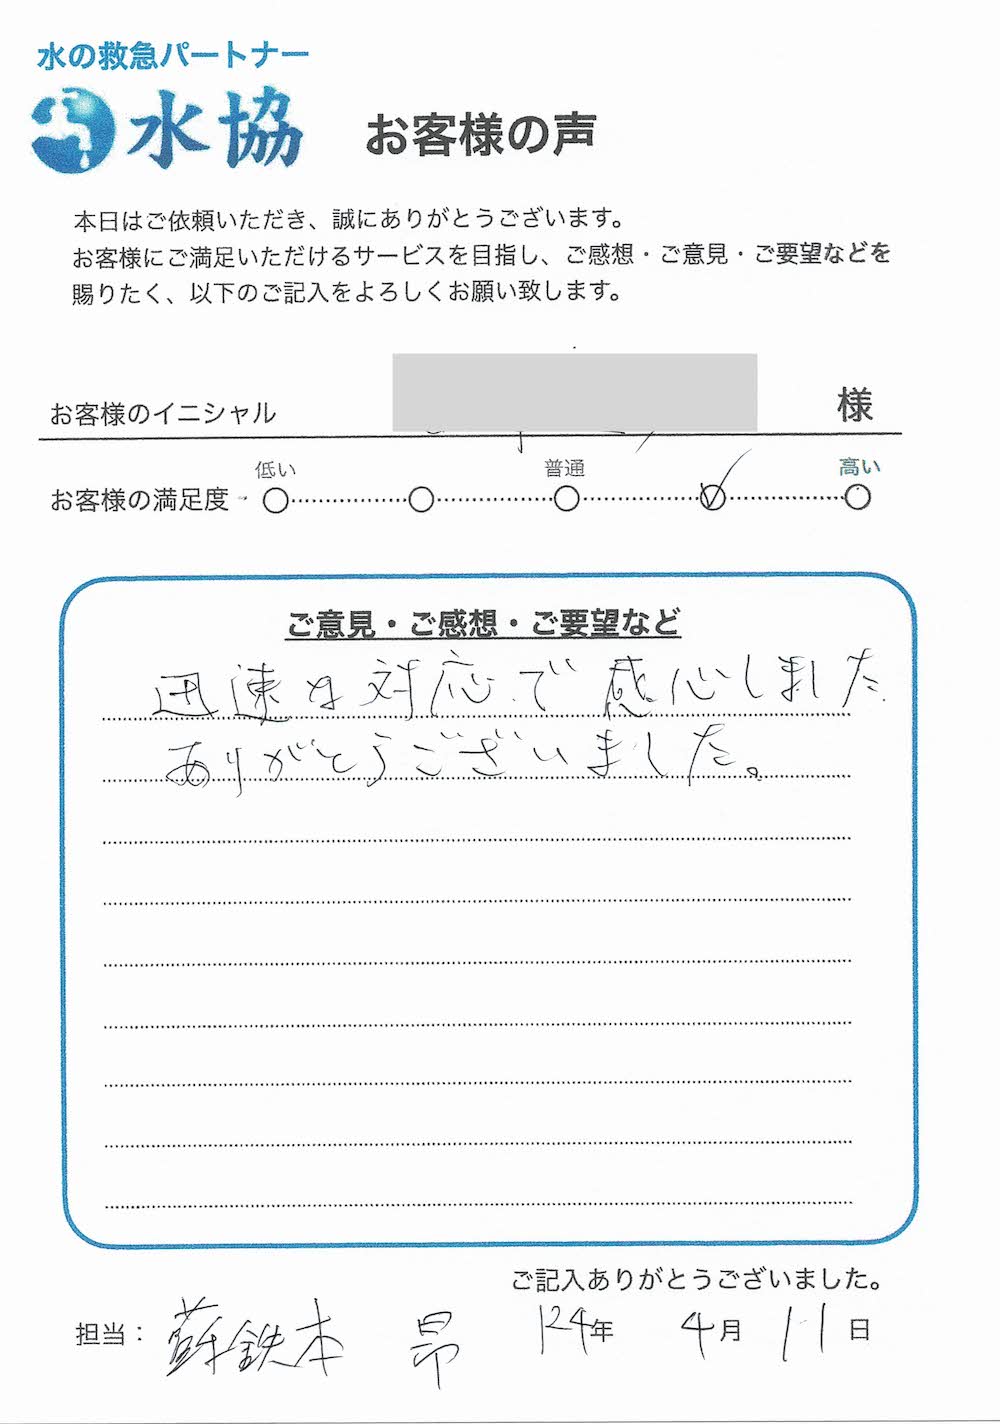 水の救急パートナー
水協
お客様の声
本日はご依頼いただき、誠にありがとうございます。
お客様にご満足いただけるサービスを目指し、ご感想・ご意見・ご要望などを
賜りたく、以下のご記入をよろしくお願い致します。
お客様のイニシャル 様
低い 普通 高い
お客様の満足度
ご意見・ご感想・ご要望など
迅速な対応で感心しました
ありがとうございました。
ご記入ありがとうございました。
担当： 蘇鉄本 昂 '24年 4月 11日